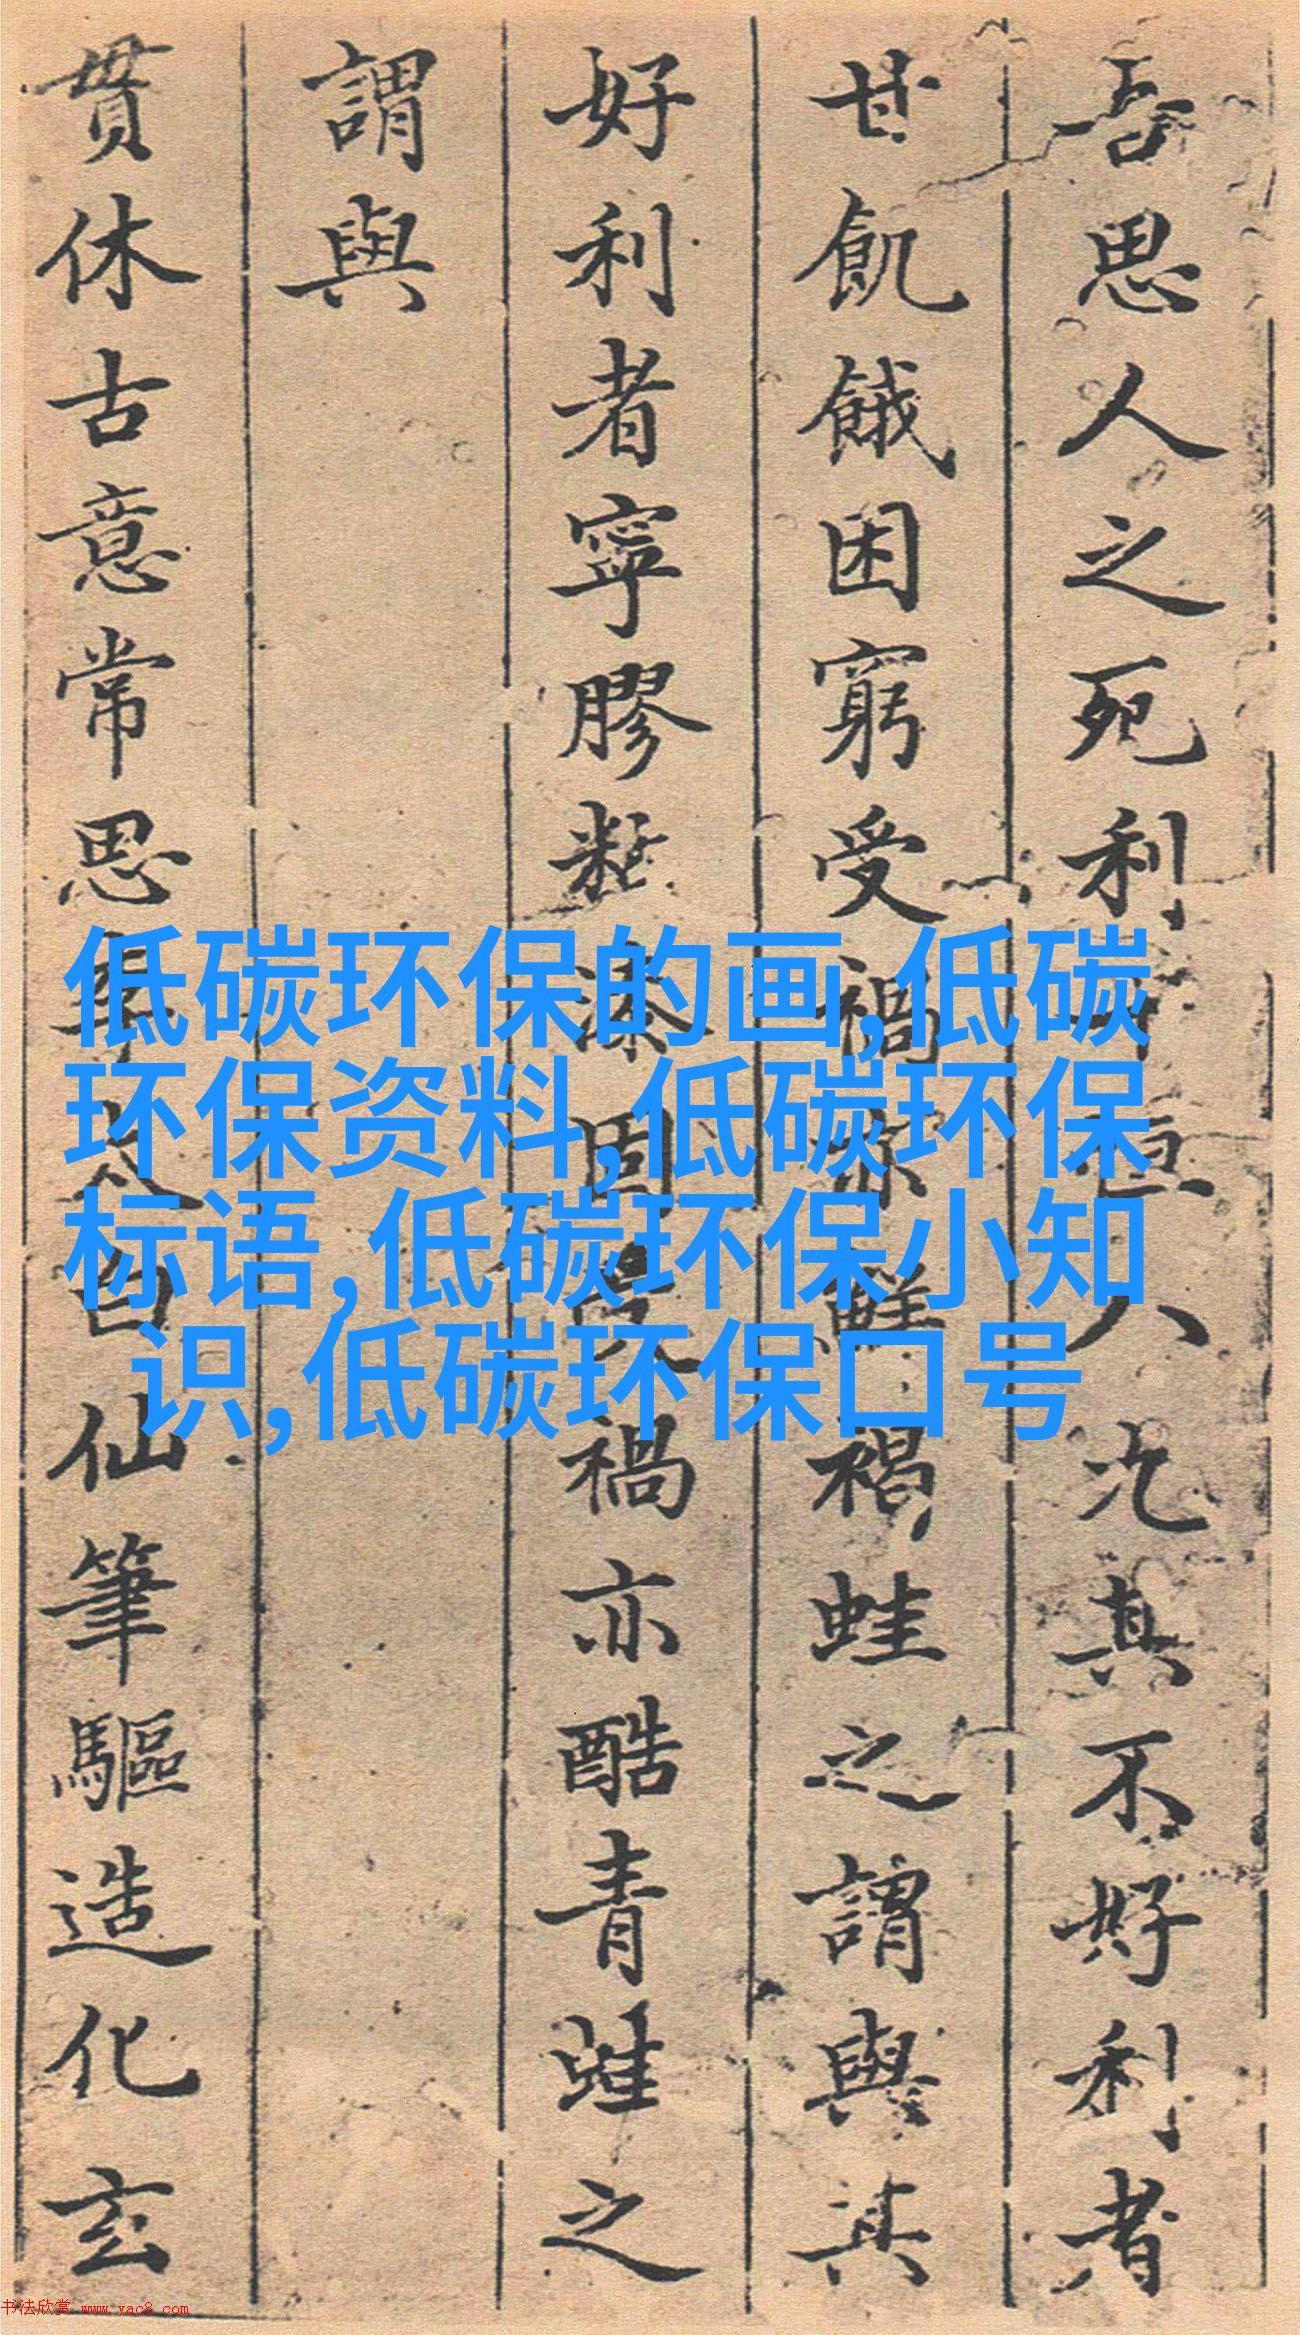 吾思人之死利十恒八九其不好利者
甘飢餓困窮受禍亦鮮褐蛙之謂與其
好利者寧膠黏漆固禍亦酷青蛙之
謂與
貫休古意常思李太白仙筆驅造化玄
低碳环保的画,低碳
环保资料,低碳环保
标语,低碳环保小知
识,低碳环保口号
书法欣赏 www.yac8.com